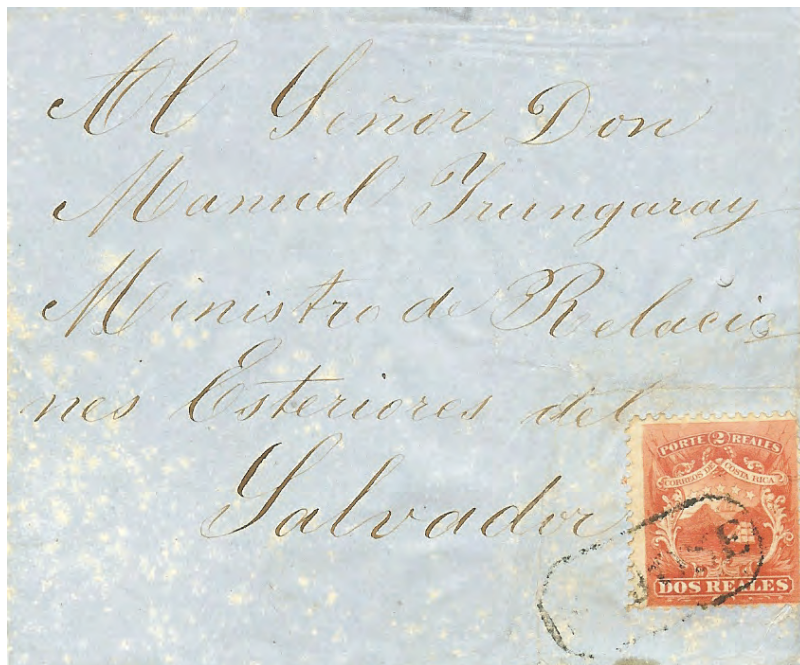 Al Señor Don
Manuel Yrungaray
Ministro de Relacio
nes Esteriores del
Salvador
PORTE 2 REALES
CORREOS DE COSTA RICA
DOS REALES